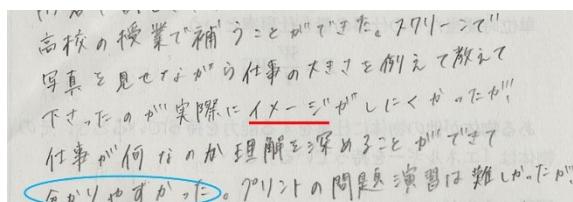 高校の授業で補うことができた。スクリーンで
写真を見せながら仕事の大きさを例えて教えて
下さったのが実際にイメージがしにくかったが、
仕事が何なのか理解を深めることができて
分かりやすかった。プリントの問題演習は難しかったが